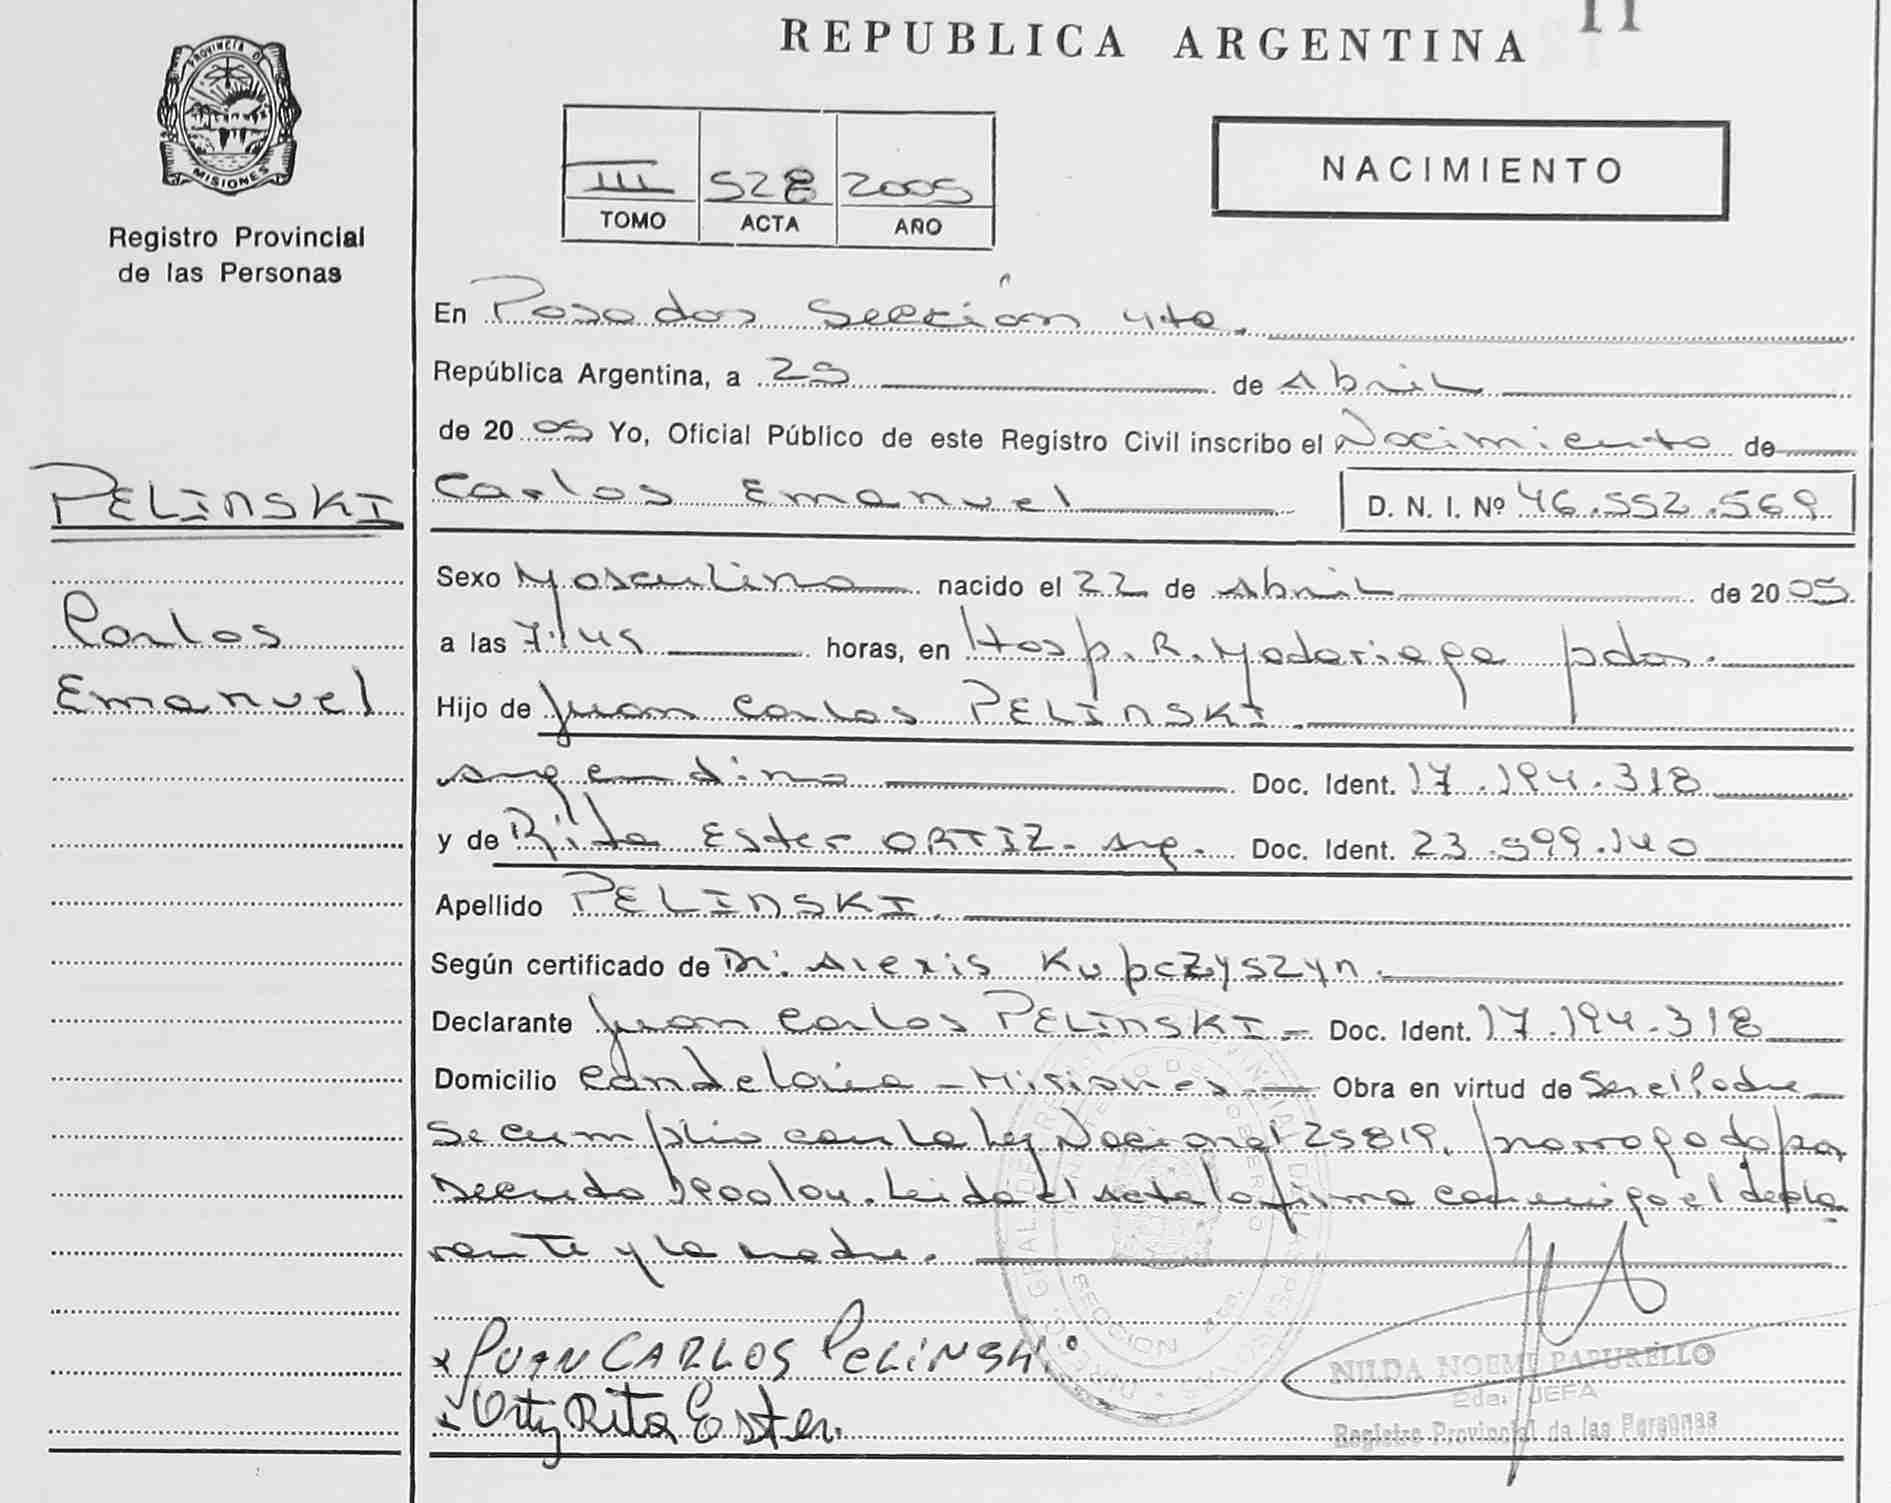 REPUBLICA ARGENTINA
11
PROVINCIA DE
MISIONES
Registro Provincial
de las Personas
III 528 2005
TOMO ACTA AÑO
NACIMIENTO
En Posadas Sección 4ta.
República Argentina, a 25 de Abril
de 2005 Yo, Oficial Público de este Registro Civil inscribo el Nacimiento de
PELINSKI
Carlos Emanuel D. N. I. Nº 46.552.569
Sexo Masculino nacido el 22 de Abril de 2005
Carlos
a las 7:45 horas, en Hosp. R. Madariaga pdas.
Emanuel
Hijo de Juan Carlos PELINSKI.
argentino Doc. Ident. 17.194.318
y de Rita Ester ORTIZ - arg. Doc. Ident. 23.599.140
Apellido PELINSKI.
Según certificado de Dr. Alexis Kupczyszyn.
Declarante Juan Carlos PELINSKI - Doc. Ident. 17.194.318
Domicilio Candelaria - Misiones - Obra en virtud de Ser el Padre
Se cumplio con la Ley Nacional 25819, prorrogado por
Decreto Leida el Acta la firma conmigo el decla
rante y la madre.
x JUAN CARLOS PELINSKI
x Ortiz Rita Ester.
SECCION 4ta.
NILDA NOEMI PAPURELLO
2da. JEFA
Registro Provincial de las Personas